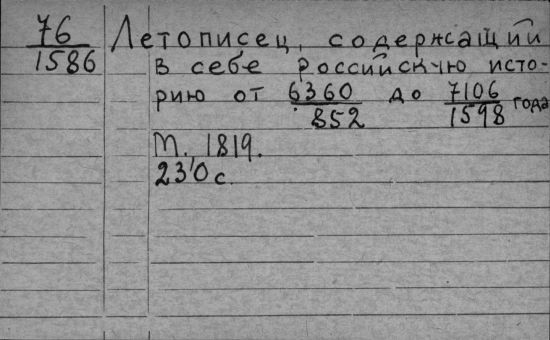 76
1586
Летописец, содержащий
в себе Российскую исто-
рию от 6360 до 7106 года
852 1598
М., 1819.
230 с.